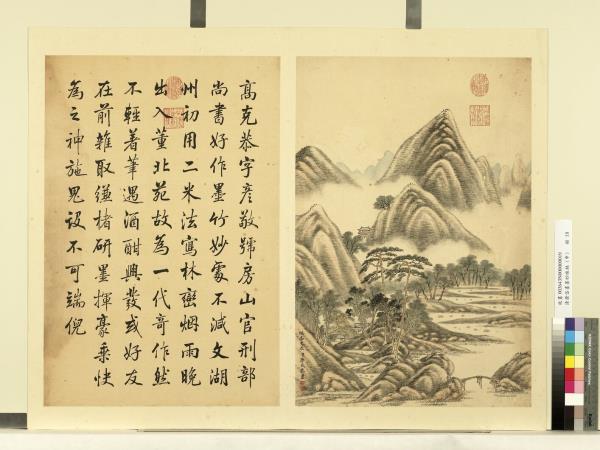 高克恭字彦敬號房山官刑部
尚書好作墨竹妙處不減文湖
州初用二米法寫林巒烟雨晚
出入董北苑故為一代奇作然
不輕著筆遇酒酣興發或好友
在前雜取縑楮研墨揮豪乘快
為之神施鬼設不可端倪